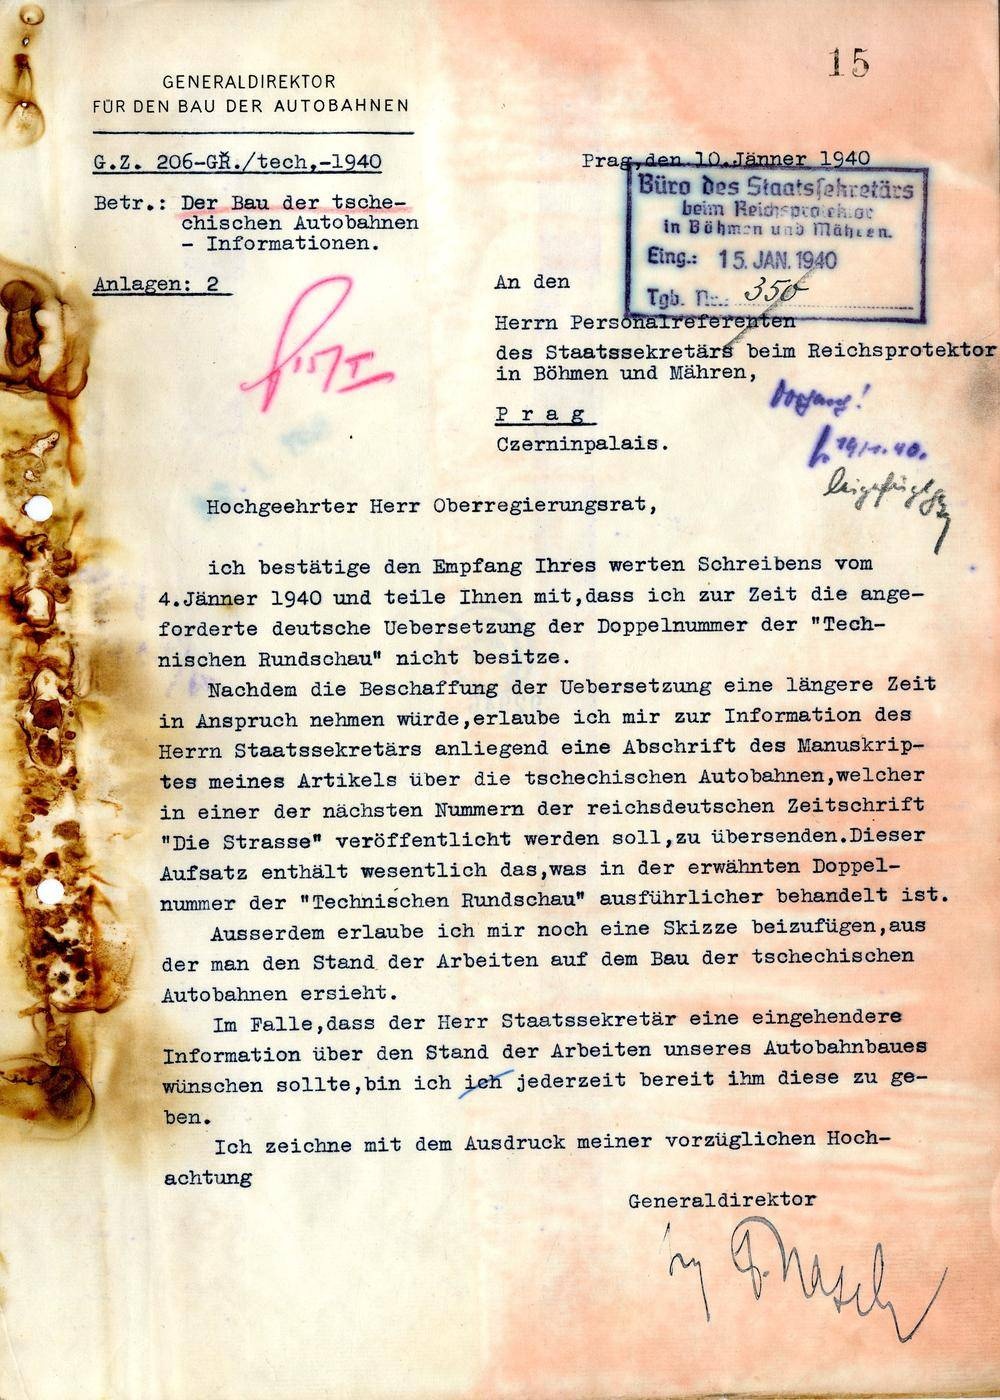 15
GENERALDIREKTOR
FÜR DEN BAU DER AUTOBAHNEN
G.Z. 206-GŘ./tech,-1940
Prag,den 10.Jänner 1940
Betr.: Der Bau der tsche-
chischen Autobahnen
- Informationen.
Anlagen: 2
Büro des Staatssekretärs
beim Reichsprotektor
in Böhmen und Mähren.
Eing.: 15. JAN. 1940
Tgb. Nr.: 350
An den
Herrn Personalreferenten
des Staatssekretärs beim Reichsprotektor
in Böhmen und Mähren,
P r a g
Czerninpalais.
15/I
Vorgang!
19/1.40.
beigefügt
Hochgeehrter Herr Oberregierungsrat,
ich bestätige den Empfang Ihres werten Schreibens vom
4.Jänner 1940 und teile Ihnen mit,dass ich zur Zeit die ange-
forderte deutsche Uebersetzung der Doppelnummer der "Tech-
nischen Rundschau" nicht besitze.
Nachdem die Beschaffung der Uebersetzung eine längere Zeit
in Anspruch nehmen würde,erlaube ich mir zur Information des
Herrn Staatssekretärs anliegend eine Abschrift des Manuskrip-
tes meines Artikels über die tschechischen Autobahnen,welcher
in einer der nächsten Nummern der reichsdeutschen Zeitschrift
"Die Strasse" veröffentlicht werden soll,zu übersenden.Dieser
Aufsatz enthält wesentlich das,was in der erwähnten Doppel-
nummer der "Technischen Rundschau" ausführlicher behandelt ist.
Ausserdem erlaube ich mir noch eine Skizze beizufügen,aus
der man den Stand der Arbeiten auf dem Bau der tschechischen
Autobahnen ersieht.
Im Falle,dass der Herr Staatssekretär eine eingehendere
Information über den Stand der Arbeiten unseres Autobahnbaues
wünschen sollte,bin ich ich jederzeit bereit ihm diese zu ge-
ben.
Ich zeichne mit dem Ausdruck meiner vorzüglichen Hoch-
achtung
Generaldirektor